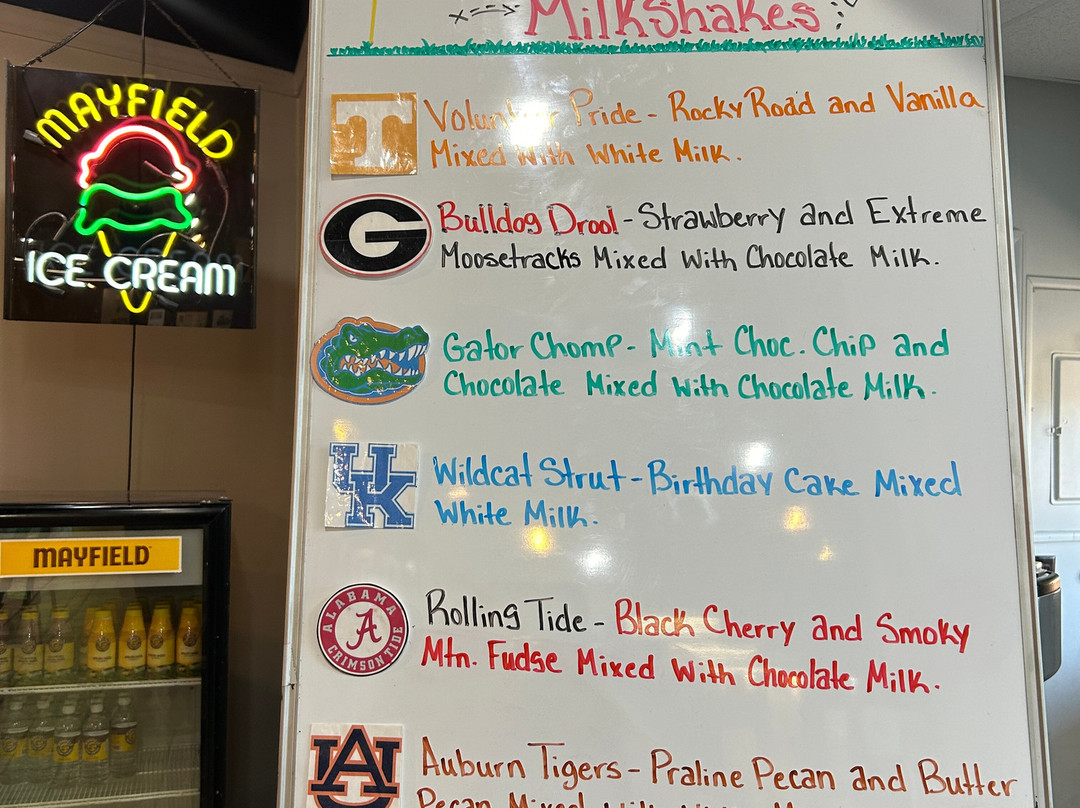 Milkshakes
MAYFIELD
ICE CREAM
T
Volunteer Pride - Rocky Road and Vanilla
Mixed With White Milk.
G
Bulldog Drool - Strawberry and Extreme
Moosetracks Mixed With Chocolate Milk.
Gator Chomp - Mint Choc. Chip and
Chocolate Mixed With Chocolate Milk.
UK
Wildcat Strut - Birthday Cake Mixed
White Milk.
MAYFIELD
ALABAMA
A
CRIMSON TIDE
Rolling Tide - Black Cherry and Smoky
Mtn. Fudge Mixed With Chocolate Milk.
AU
Auburn Tigers - Praline Pecan and Butter
Pecan Mixed With